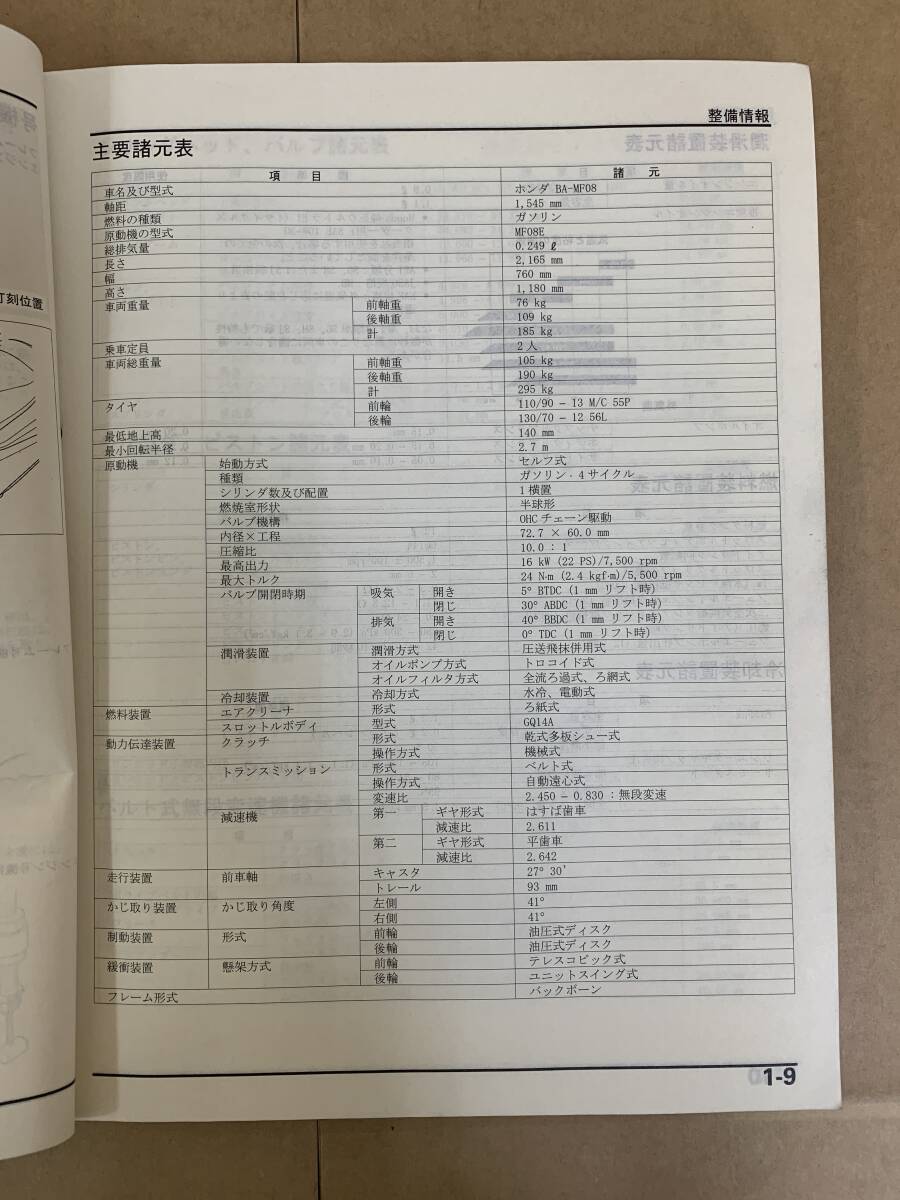 整備情報
主要諸元表
項 目 諸 元
車名及び型式 ホンダ BA-MF08
軸距 1,545 mm
燃料の種類 ガソリン
原動機の型式 MF08E
総排気量 0.249 ℓ
長さ 2,165 mm
幅 760 mm
高さ 1,180 mm
車両重量 前軸重 76 kg
後軸重 109 kg
計 185 kg
乗車定員 2 人
車両総重量 前軸重 105 kg
後軸重 190 kg
計 295 kg
タイヤ 前輪 110/90 − 13 M/C 55P
後輪 130/70 − 12 56L
最低地上高 140 mm
最小回転半径 2.7 m
原動機 始動方式 セルフ式
種類 ガソリン・4 サイクル
シリンダ数及び配置 1 横置
燃焼室形状 半球形
バルブ機構 OHC チェーン駆動
内径×工程 72.7 × 60.0 mm
圧縮比 10.0 : 1
最高出力 16 kW (22 PS)/7,500 rpm
最大トルク 24 N·m (2.4 kgf·m)/5,500 rpm
バルブ開閉時期 吸気 開き 5° BTDC (1 mm リフト時)
閉じ 30° ABDC (1 mm リフト時)
排気 開き 40° BBDC (1 mm リフト時)
閉じ 0° TDC (1 mm リフト時)
潤滑装置 潤滑方式 圧送飛抹併用式
オイルポンプ方式 トロコイド式
オイルフィルタ方式 全流ろ過式、ろ網式
冷却装置 冷却方式 水冷、電動式
燃料装置 エアクリーナ 形式 ろ紙式
スロットルボディ 型式 GQ14A
動力伝達装置 クラッチ 形式 乾式多板シュー式
操作方式 機械式
トランスミッション 形式 ベルト式
操作方式 自動遠心式
変速比 2.450 − 0.830 : 無段変速
減速機 第一 ギヤ形式 はすば歯車
減速比 2.611
第二 ギヤ形式 平歯車
減速比 2.642
走行装置 前車軸 キャスタ 27° 30'
トレール 93 mm
かじ取り装置 かじ取り角度 左側 41°
右側 41°
制動装置 形式 前輪 油圧式ディスク
後輪 油圧式ディスク
緩衝装置 懸架方式 前輪 テレスコピック式
後輪 ユニットスイング式
フレーム形式 バックボーン
1-9
打刻位置